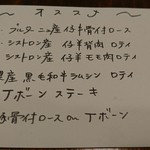 オススメ
・ブルターニュ産 仔牛骨付ロース
・シストロン産 仔羊背肉 ロティ
・シストロン産 仔羊モモ肉 ロティ
産 黒毛和牛 ランムシン ロティ
Tボーン ステーキ
骨付ロース or Tボーン